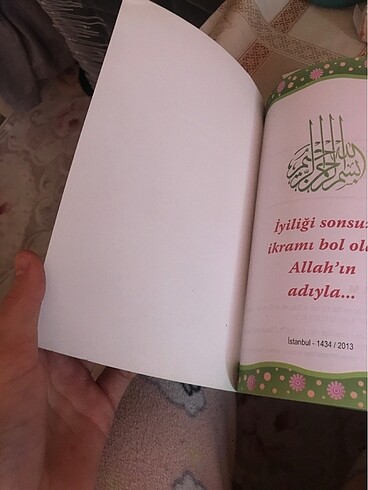 بسم الله الرحمن الرحيم
İyiliği sonsuz
ikramı bol
Allah'ın
adıyla...
İstanbul - 1434 / 2013